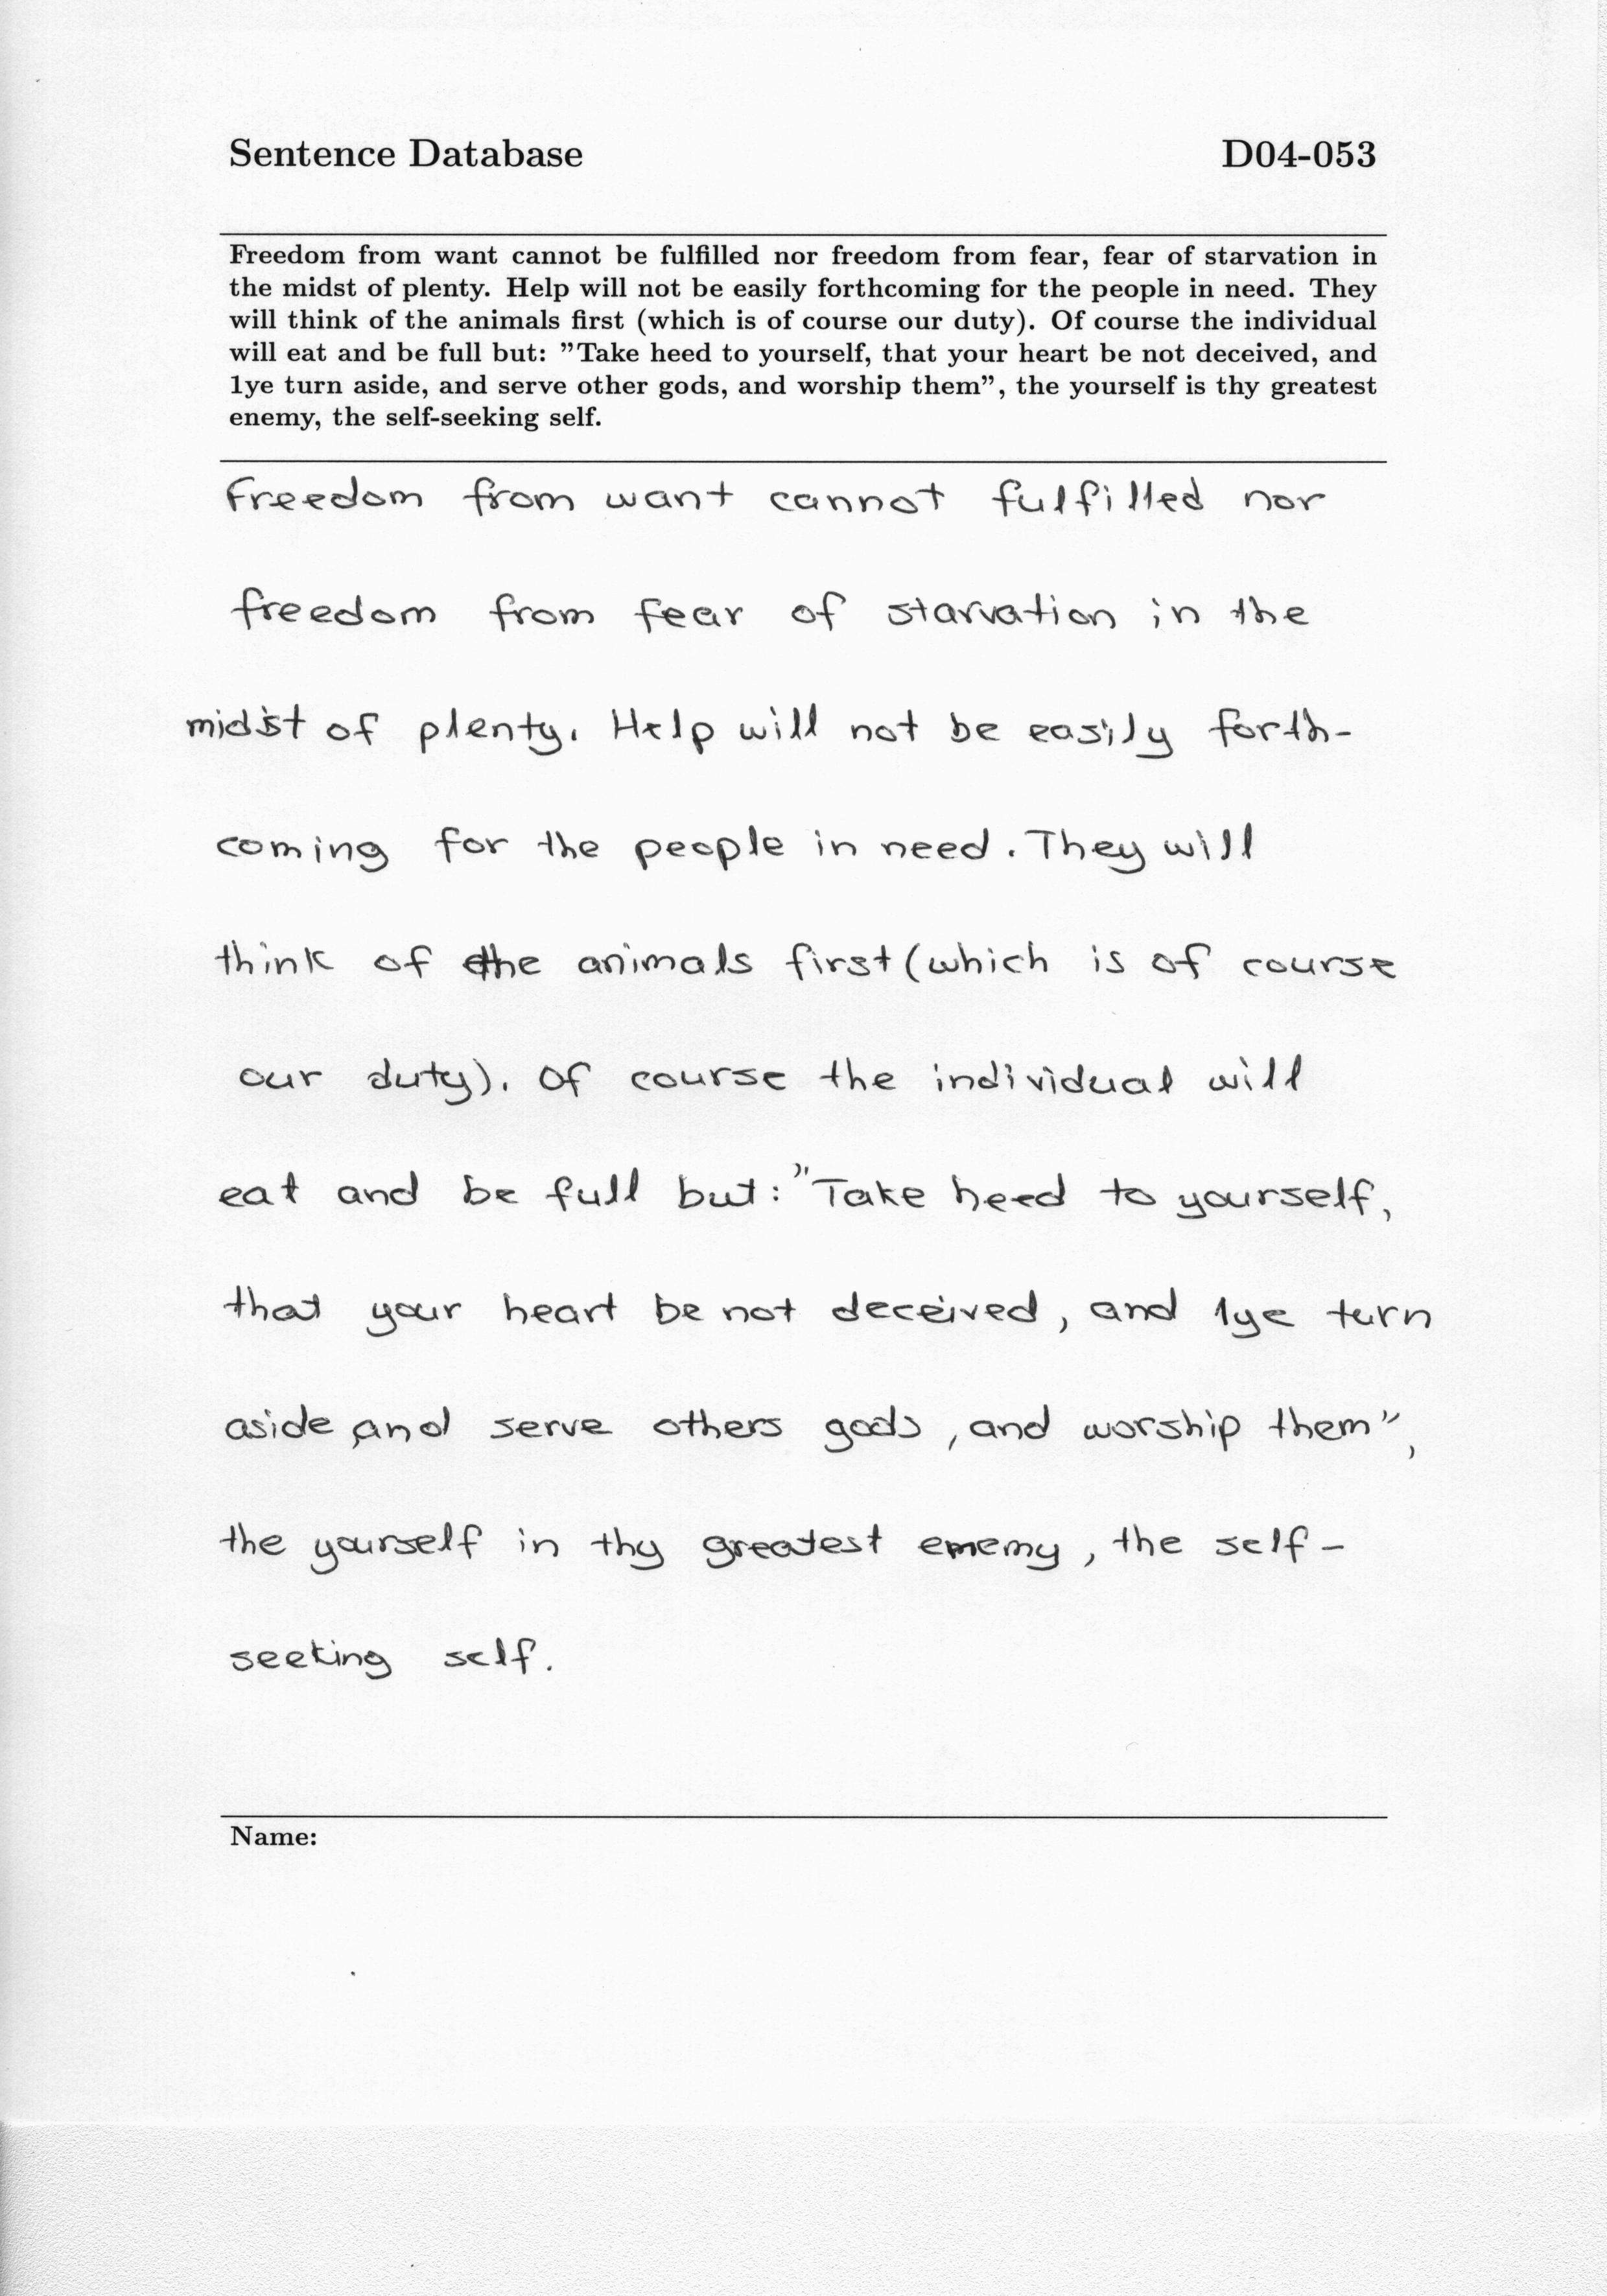 Sentence Database D04-053
Freedom from want cannot be fulfilled nor freedom from fear, fear of starvation in
the midst of plenty. Help will not be easily forthcoming for the people in need. They
will think of the animals first (which is of course our duty). Of course the individual
will eat and be full but: ”Take heed to yourself, that your heart be not deceived, and
1ye turn aside, and serve other gods, and worship them”, the yourself is thy greatest
enemy, the self-seeking self.
Freedom from want cannot fulfilled nor
freedom from fear of starvation in the
midst of plenty. Help will not be easily forth-
coming for the people in need. They will
think of the animals first (which is of course
our duty). Of course the individual will
eat and be full but: ”Take heed to yourself,
that your heart be not deceived, and 1ye turn
aside, and serve others gods, and worship them”,
the yourself in thy greatest enemy, the self-
seeking self.
Name: